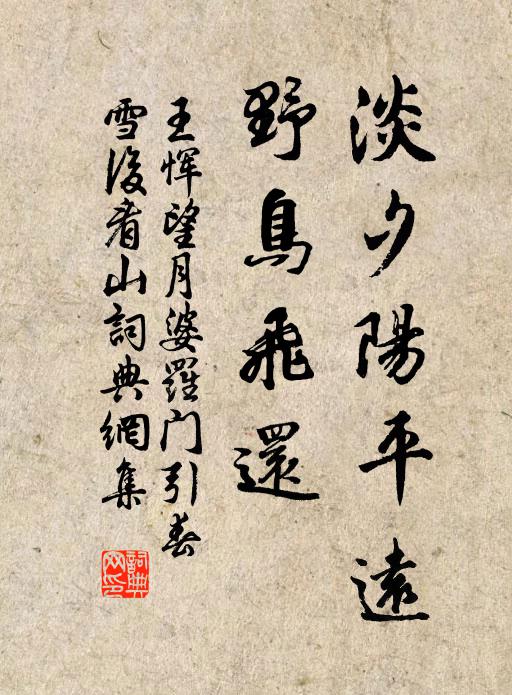 淡夕陽平遠
野鳥飛還
王恽望月婆羅门引春
雪後看山詞典網集
詞典
网印